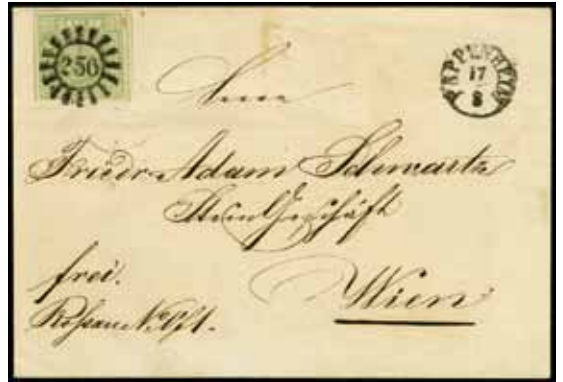 250
PAPPENHEIM
17
8
Herrn
Frieder. Adam Schwartz
Steingeschäft
frei.
Wien